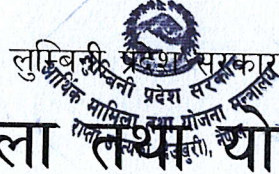 लुम्बिनी प्रदेश सरकार
लुम्बिनी प्रदेश सरकार
आर्थिक मामिला तथा योजना मन्त्रालय
ला तथा यो